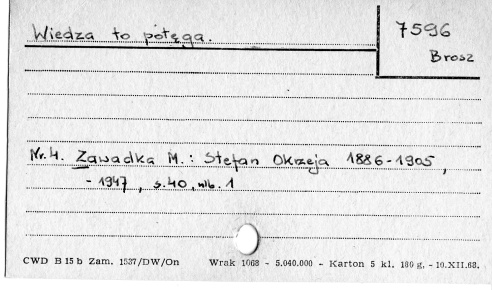 Wiedza to potęga.
7596
Brosz
Nr. 4. Zawadka M.: Stefan Okrzeja 1886-1905,
- 1947, s. 40, nlb. 1
CWD B 15 b Zam. 1537/DW/On Wrak 1068 - 5.040.000 - Karton 5 kl. 180 g. - 10.XII.68.